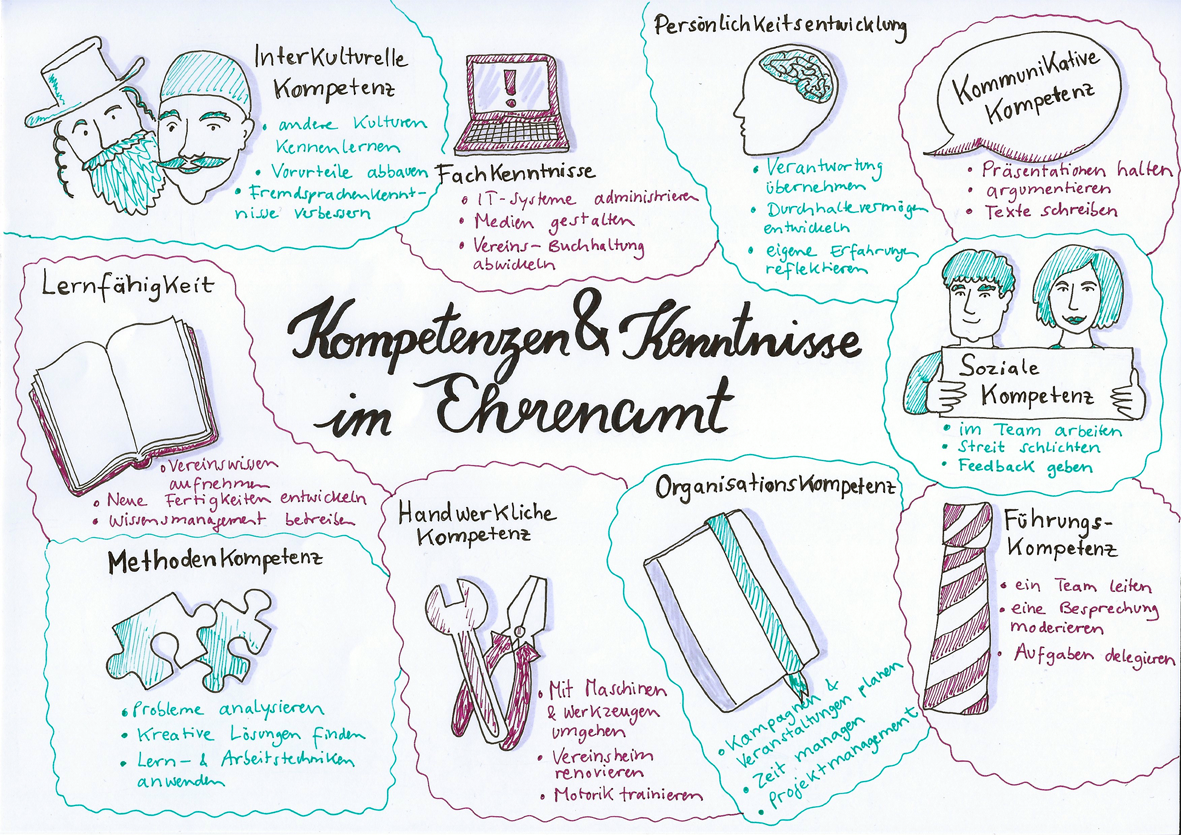 Interkulturelle
Kompetenz
• andere Kulturen
kennenlernen
• Vorurteile abbauen
• Fremdsprachenkennt-
nisse verbessern
!
Fachkenntnisse
• IT-Systeme administrieren
• Medien gestalten
• Vereins-Buchhaltung
abwickeln
Persönlichkeitsentwicklung
• Verantwortung
übernehmen
• Durchhaltevermögen
entwickeln
• eigene Erfahrungen
reflektieren
Kommunikative
Kompetenz
• Präsentationen halten
• argumentieren
• Texte schreiben
Lernfähigkeit
• Vereinswissen
aufnehmen
• Neue Fertigkeiten entwickeln
• Wissensmanagement betreiben
Kompetenzen & Kenntnisse
im Ehrenamt
Soziale
Kompetenz
• im Team arbeiten
• Streit schlichten
• Feedback geben
Methodenkompetenz
• Probleme analysieren
• Kreative Lösungen finden
• Lern- & Arbeitstechniken
anwenden
Handwerkliche
Kompetenz
• Mit Maschinen
& Werkzeugen
umgehen
• Vereinsheim
renovieren
• Motorik trainieren
Organisationskompetenz
• Kampagnen &
Veranstaltungen planen
• Zeit managen
• Projektmanagement
Führungs-
kompetenz
• ein Team leiten
• eine Besprechung
moderieren
• Aufgaben delegieren